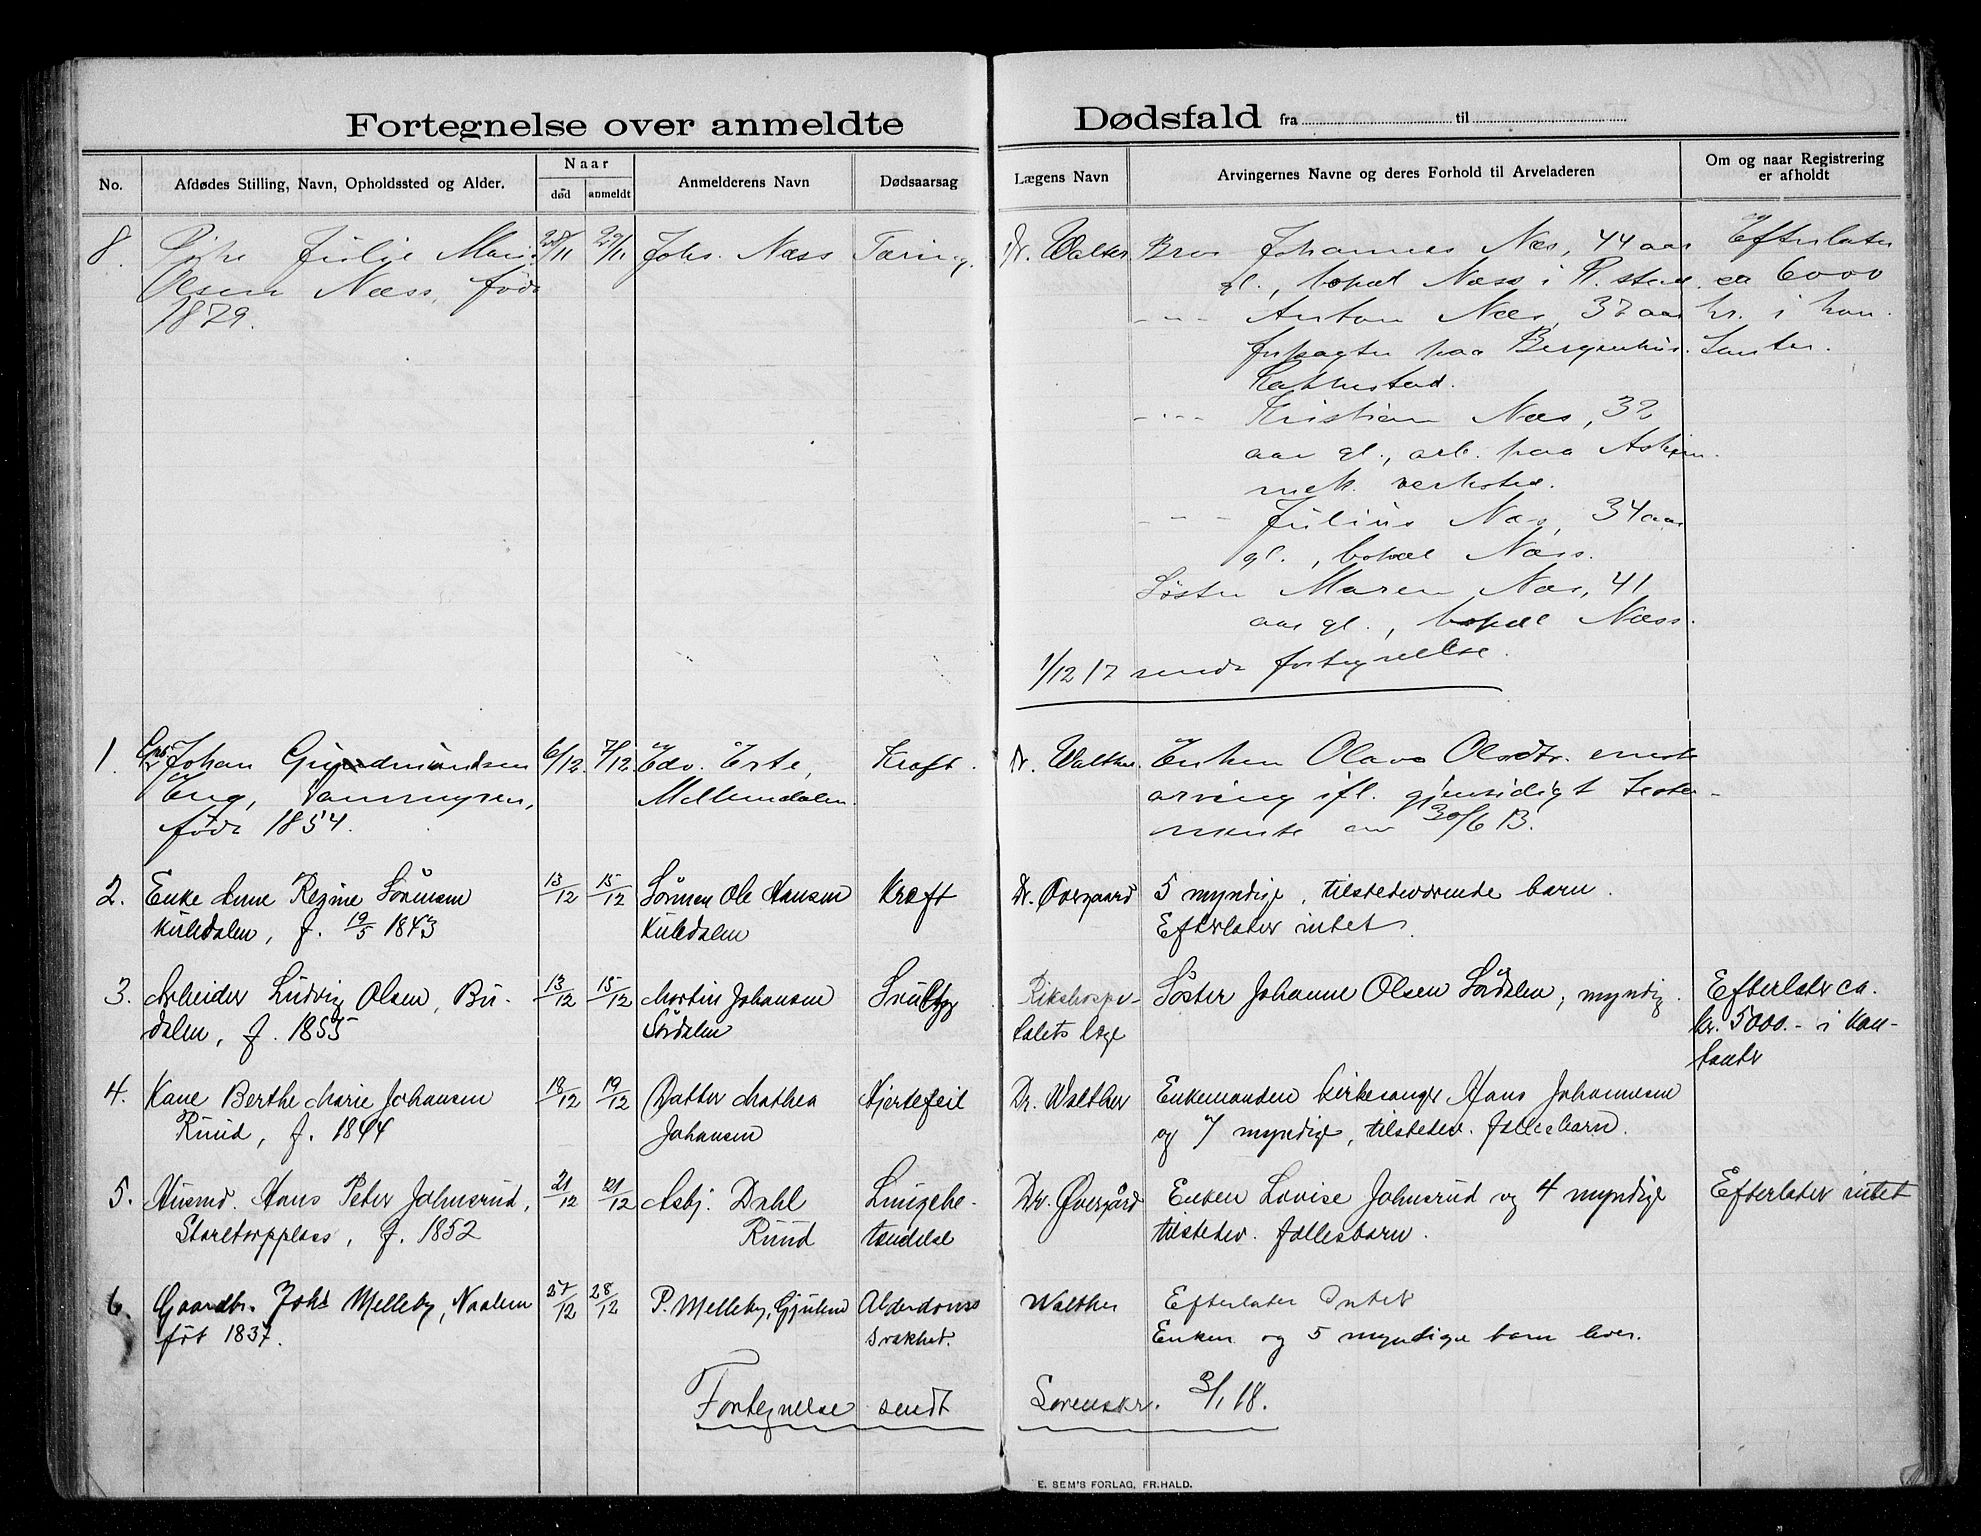 Fortegnelse over anmeldte Dødsfald fra til
No.
Afdødes Stilling, Navn, Opholdssted og Alder.
Naar
død
anmeldt
Anmelderens Navn
Dødsaarsag
Lægens Navn
Arvingernes Navne og deres Forhold til Arveladeren
Om og naar Registrering
er afholdt
8. Pike Julie Marie 28/11 29/11 Johs. Næss Tæring. Dr. Walther Bror Johannes Næs, 44 aar Efterlater
Olsen Næss, født gl., bopæl Næss i R.stad. ca 6000
1879. -"- Anton Næs, 37 aar kr. i kon-
forpagter paa Bergenhus. tanter.
Rakkestad.
-"- Kristian Næs, 32
aar gl., arb. paa Askim
mek. verksted.
-"- Julius Næs, 34 aar
gl., bopæl Næss.
Søster Maren Næs, 41
aar gl., bopæl Næss.
1/12 17 sendt fortegnelse.
1. Johan Gudmundsen 6/12 7/12 Edv. Erte, Kræft. Dr. Walther. Enken Olava Olsdtr. eneste
Eng, arving ifl. gjensidigt testa-
født 1854. mente av 30/6 13.
2. Enke Anne Regine Sørensen 13/12 15/12 Sønnen Ole Hansen Kræft Dr. Øvergaard 5 myndige, tilstedeværende barn.
Kuledalen, f. 19/5 1843 Kuledalen Efterlater intet.
3. Arbeider Ludvig Olsen, Bu- 13/12 15/12 Martin Johansen Rikshospi- Søster Johanne Olsen Sørdalen, myndig. Efterlater ca.
dalen, f. 1855 Sørdalen talets læge kr. 5000.- i kon-
tanter
4. Kone Berthe Marie Johansen 18/12 19/12 Datter Mathea Hjertefeil Dr. Walther Enkemanden kirkesanger Hans Johannesen
Ruud, f. 1844 Johansen og 7 myndige, tilstedev. fællesbarn.
5. Husmd. Hans Peter Johnsrud, 21/12 21/12 Asbj. Dahl Lungebe- Dr. Øvergård Enken Lovise Johnsrud og 4 myndige Efterlater intet
Storetorpplass, f. 1852 Ruud tændelse tilstedev. fællesbarn.
6. Gaardbr. Johs Melleby, Naalem 27/12 28/12 P. Melleby, Gjulem Alderdoms Walther Efterlater Intet
føt 1837. svakhet. Enken og 5 myndige barn lever.
Fortegnelse sendt Sorenskr. 3/1 18.
E. SEM'S FORLAG, FR.HALD.